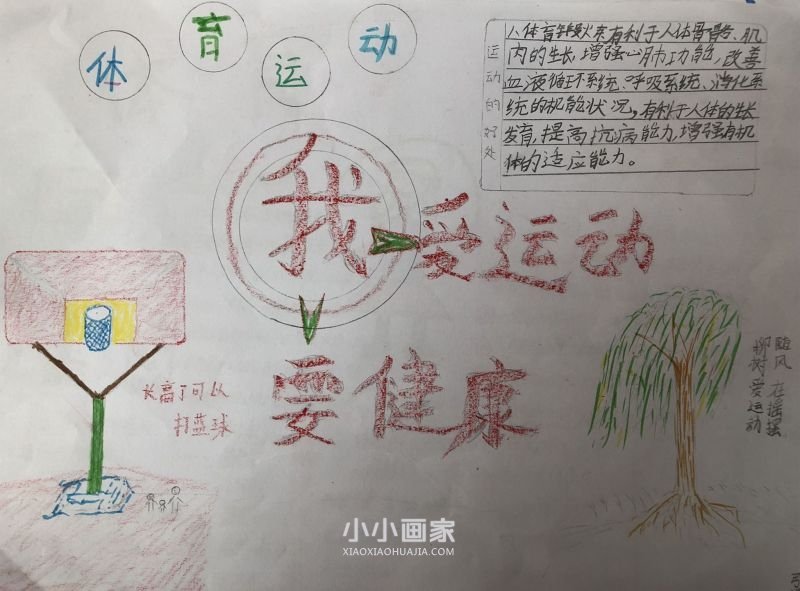 体育运动
运动的好处
人体育锻炼有利于人体骨骼、肌
肉的生长,增强心肺功能,改善
血液循环系统、呼吸系统、消化系
统的机能状况,有利于人体的生长
发育,提高抗病能力,增强有机
体的适应能力。
我爱运动
要健康
长高了可以
打蓝球
随风在摇摆
柳树爱运动
小小画家
XIAOXIAOHUAJIA.COM